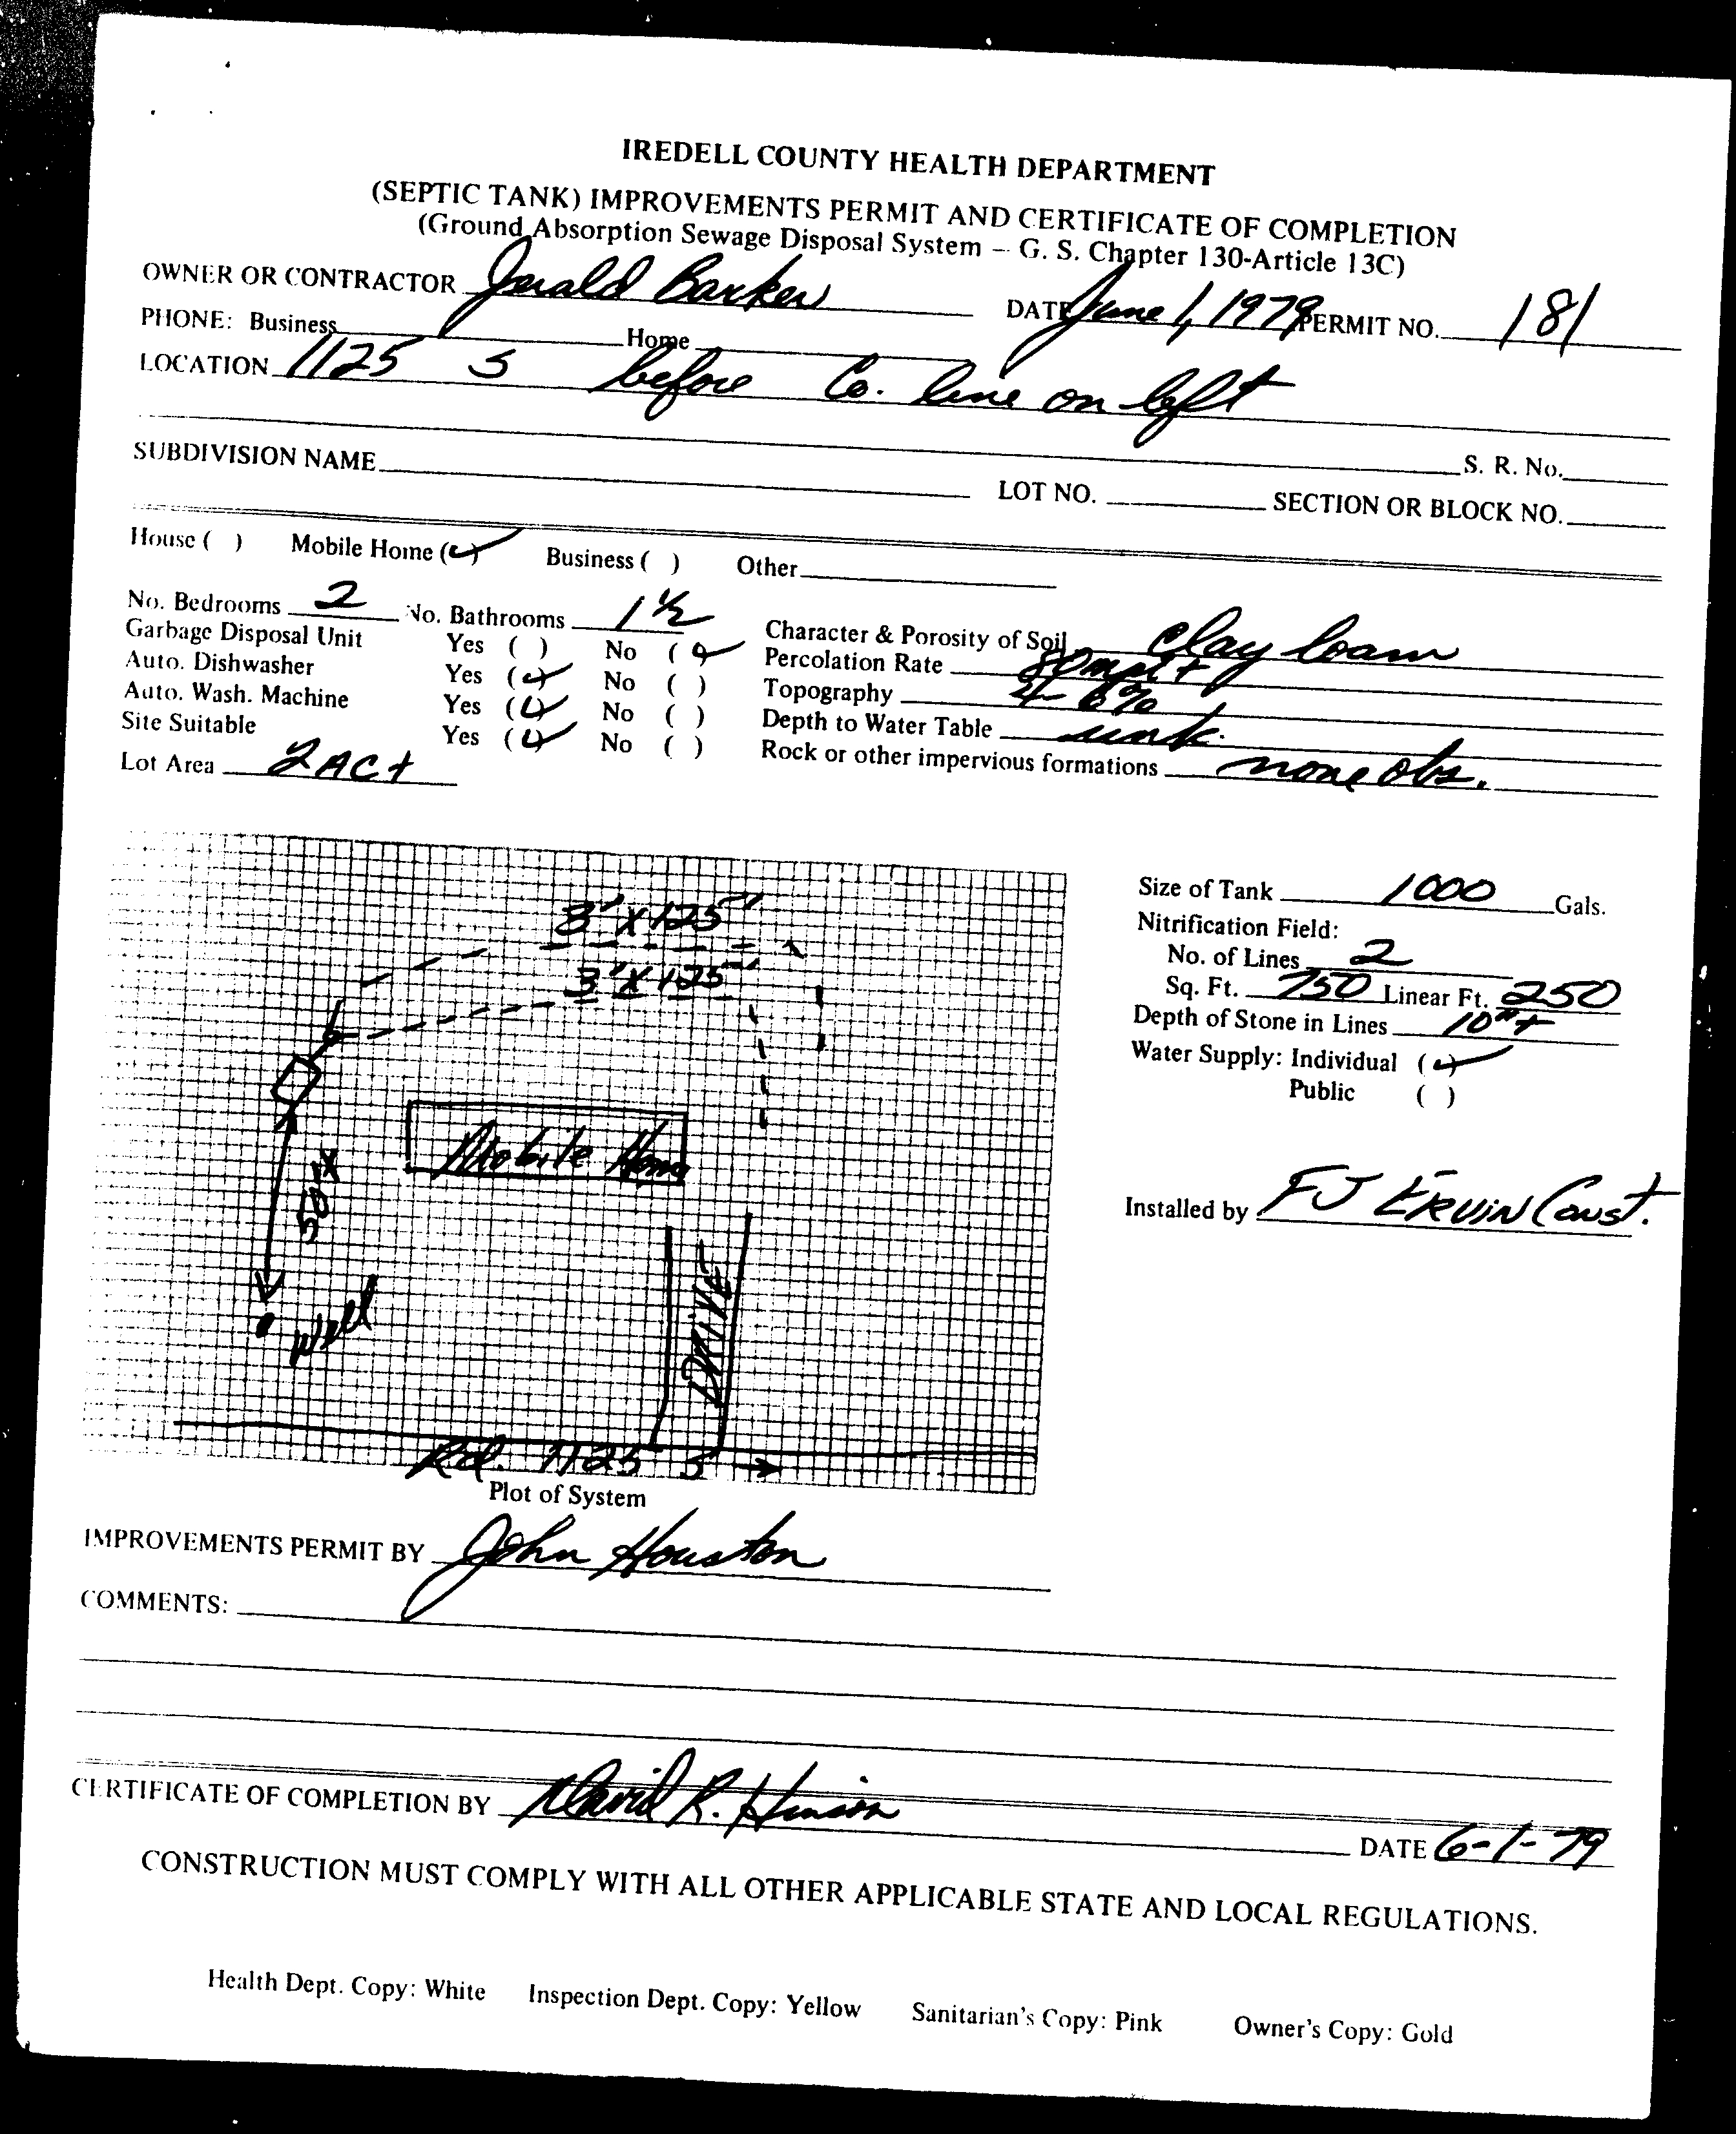 IREDELL COUNTY HEALTH DEPARTMENT
(SEPTIC TANK) IMPROVEMENTS PERMIT AND CERTIFICATE OF COMPLETION
(Ground Absorption Sewage Disposal System – G. S. Chapter 130-Article 13C)
OWNER OR CONTRACTOR Jerald Barker DATE June 1, 1979 PERMIT NO. 181
PHONE: Business Home
LOCATION 1125 S before Co. line on left
S. R. No.
SUBDIVISION NAME LOT NO. SECTION OR BLOCK NO.
House ( ) Mobile Home (✓) Business ( ) Other
No. Bedrooms 2 No. Bathrooms 1 ½
Garbage Disposal Unit Yes ( ) No (✓)
Auto. Dishwasher Yes (✓) No ( )
Auto. Wash. Machine Yes (✓) No ( )
Site Suitable Yes (✓) No ( )
Lot Area 2 AC +
Character & Porosity of Soil clay loam
Percolation Rate 80 mpi +
Topography 4- 6%
Depth to Water Table unk.
Rock or other impervious formations none obs.
3' X 125'
3' X 125'
Mobile Home
50'+
Well
DRIVE
Rd. 1125 S →
Plot of System
Size of Tank 1000 Gals.
Nitrification Field:
No. of Lines 2
Sq. Ft. 750 Linear Ft. 250
Depth of Stone in Lines 10" +
Water Supply: Individual (✓)
Public ( )
Installed by FJ ERVIN Const.
IMPROVEMENTS PERMIT BY John Houston
COMMENTS:
CERTIFICATE OF COMPLETION BY David R. Hinson
DATE 6-1-79
CONSTRUCTION MUST COMPLY WITH ALL OTHER APPLICABLE STATE AND LOCAL REGULATIONS.
Health Dept. Copy: White Inspection Dept. Copy: Yellow Sanitarian's Copy: Pink Owner's Copy: Gold